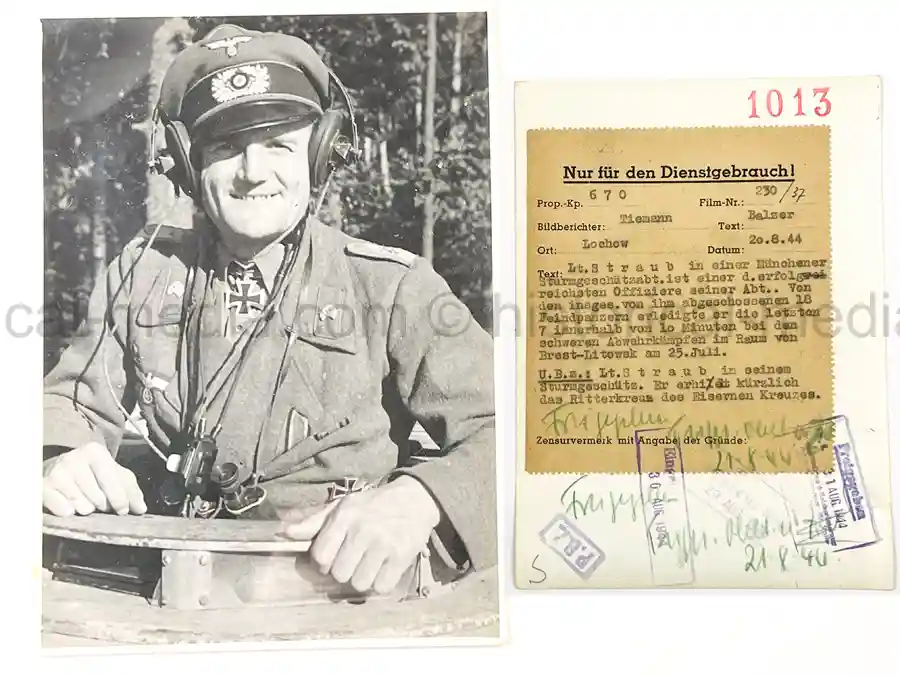 1013
Nur für den Dienstgebrauch!
Prop.-Kp. 670 Film-Nr.: 230/37
Bildberichter: Tiemann Text: Balzer
Ort: Lochow Datum: 20.8.44
Text: Lt. S t r a u b in einer Münchener
Sturmgeschützabt. ist einer d. erfolgrei
reichsten Offiziere seiner Abt.. Von
den insges. von ihm abgeschossenen 18
Feindpanzern erledigte er die letzten
7 innerhalb von 10 Minuten bei den
schweren Abwehrkämpfen im Raum von
Brest-Litowsk am 25.Juli.
U.B.z.: Lt. S t r a u b in seinem
Sturmgeschütz. Er erhielt kürzlich
das Ritterkreuz des Eisernen Kreuzes.
Zensurvermerk mit Angabe der Gründe:
21.8.44
30 AUG 1944
1 AUG 1944
Freigegeben
P.B.Z.
21.8.44
S